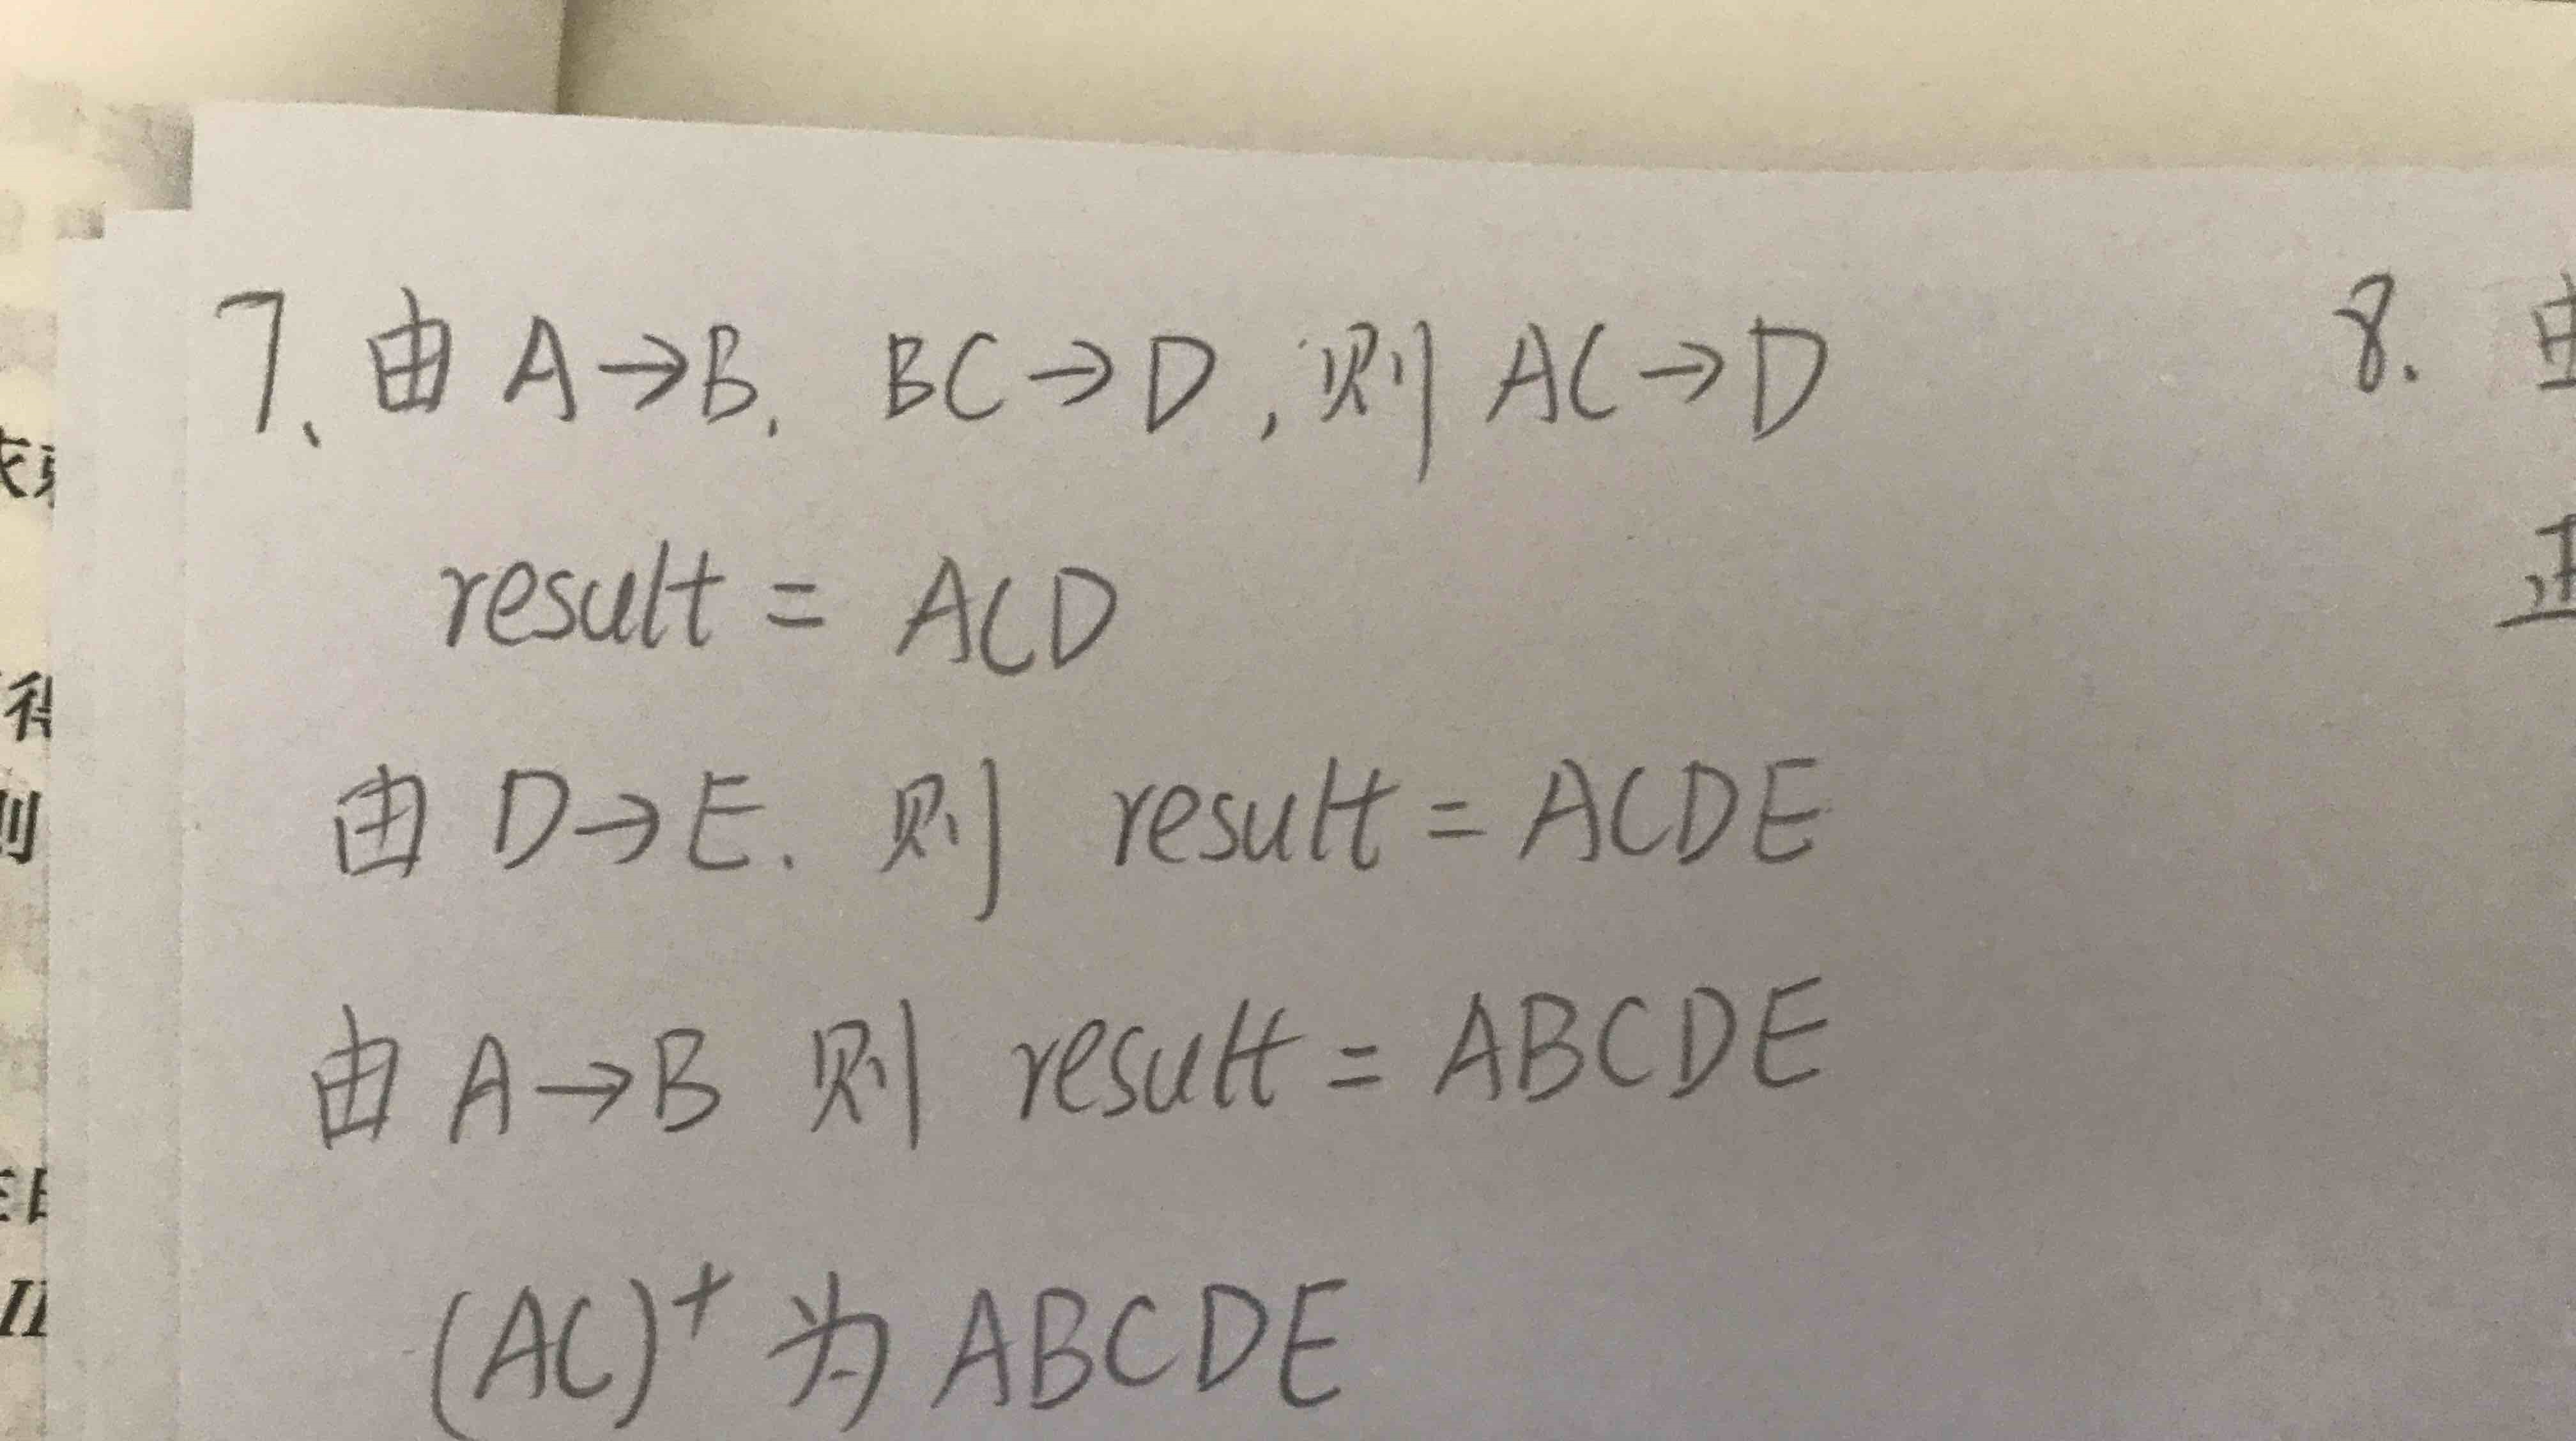 7、由 A→B, BC→D, 则 AC→D
result = ACD
由 D→E. 则 result = ACDE
由 A→B 则 result = ABCDE
(AC)⁺ 为 ABCDE
8. 由
则
II